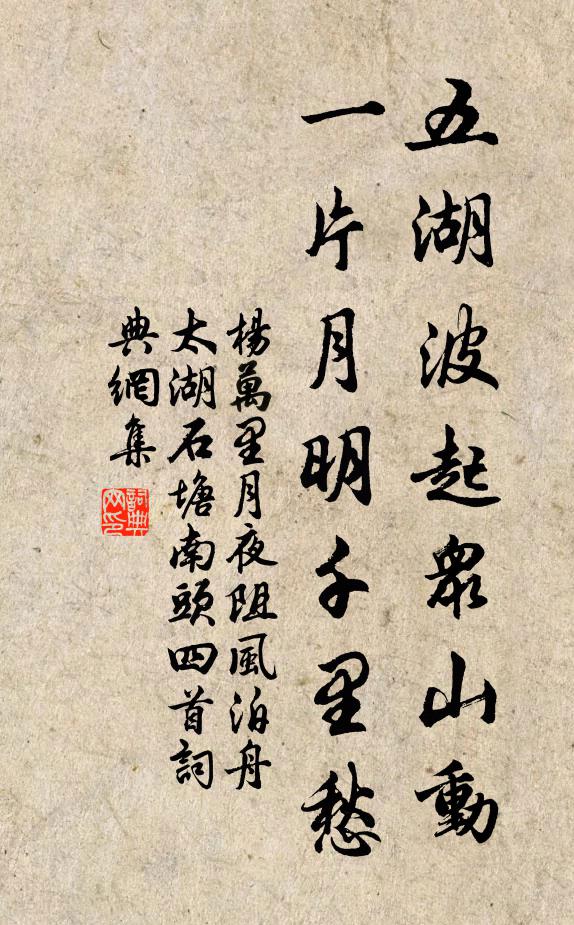 五湖波起衆山動
一片月明千里愁
楊萬里月夜阻風泊舟
太湖石塘南頭四首詞
典網集
詞典
网印